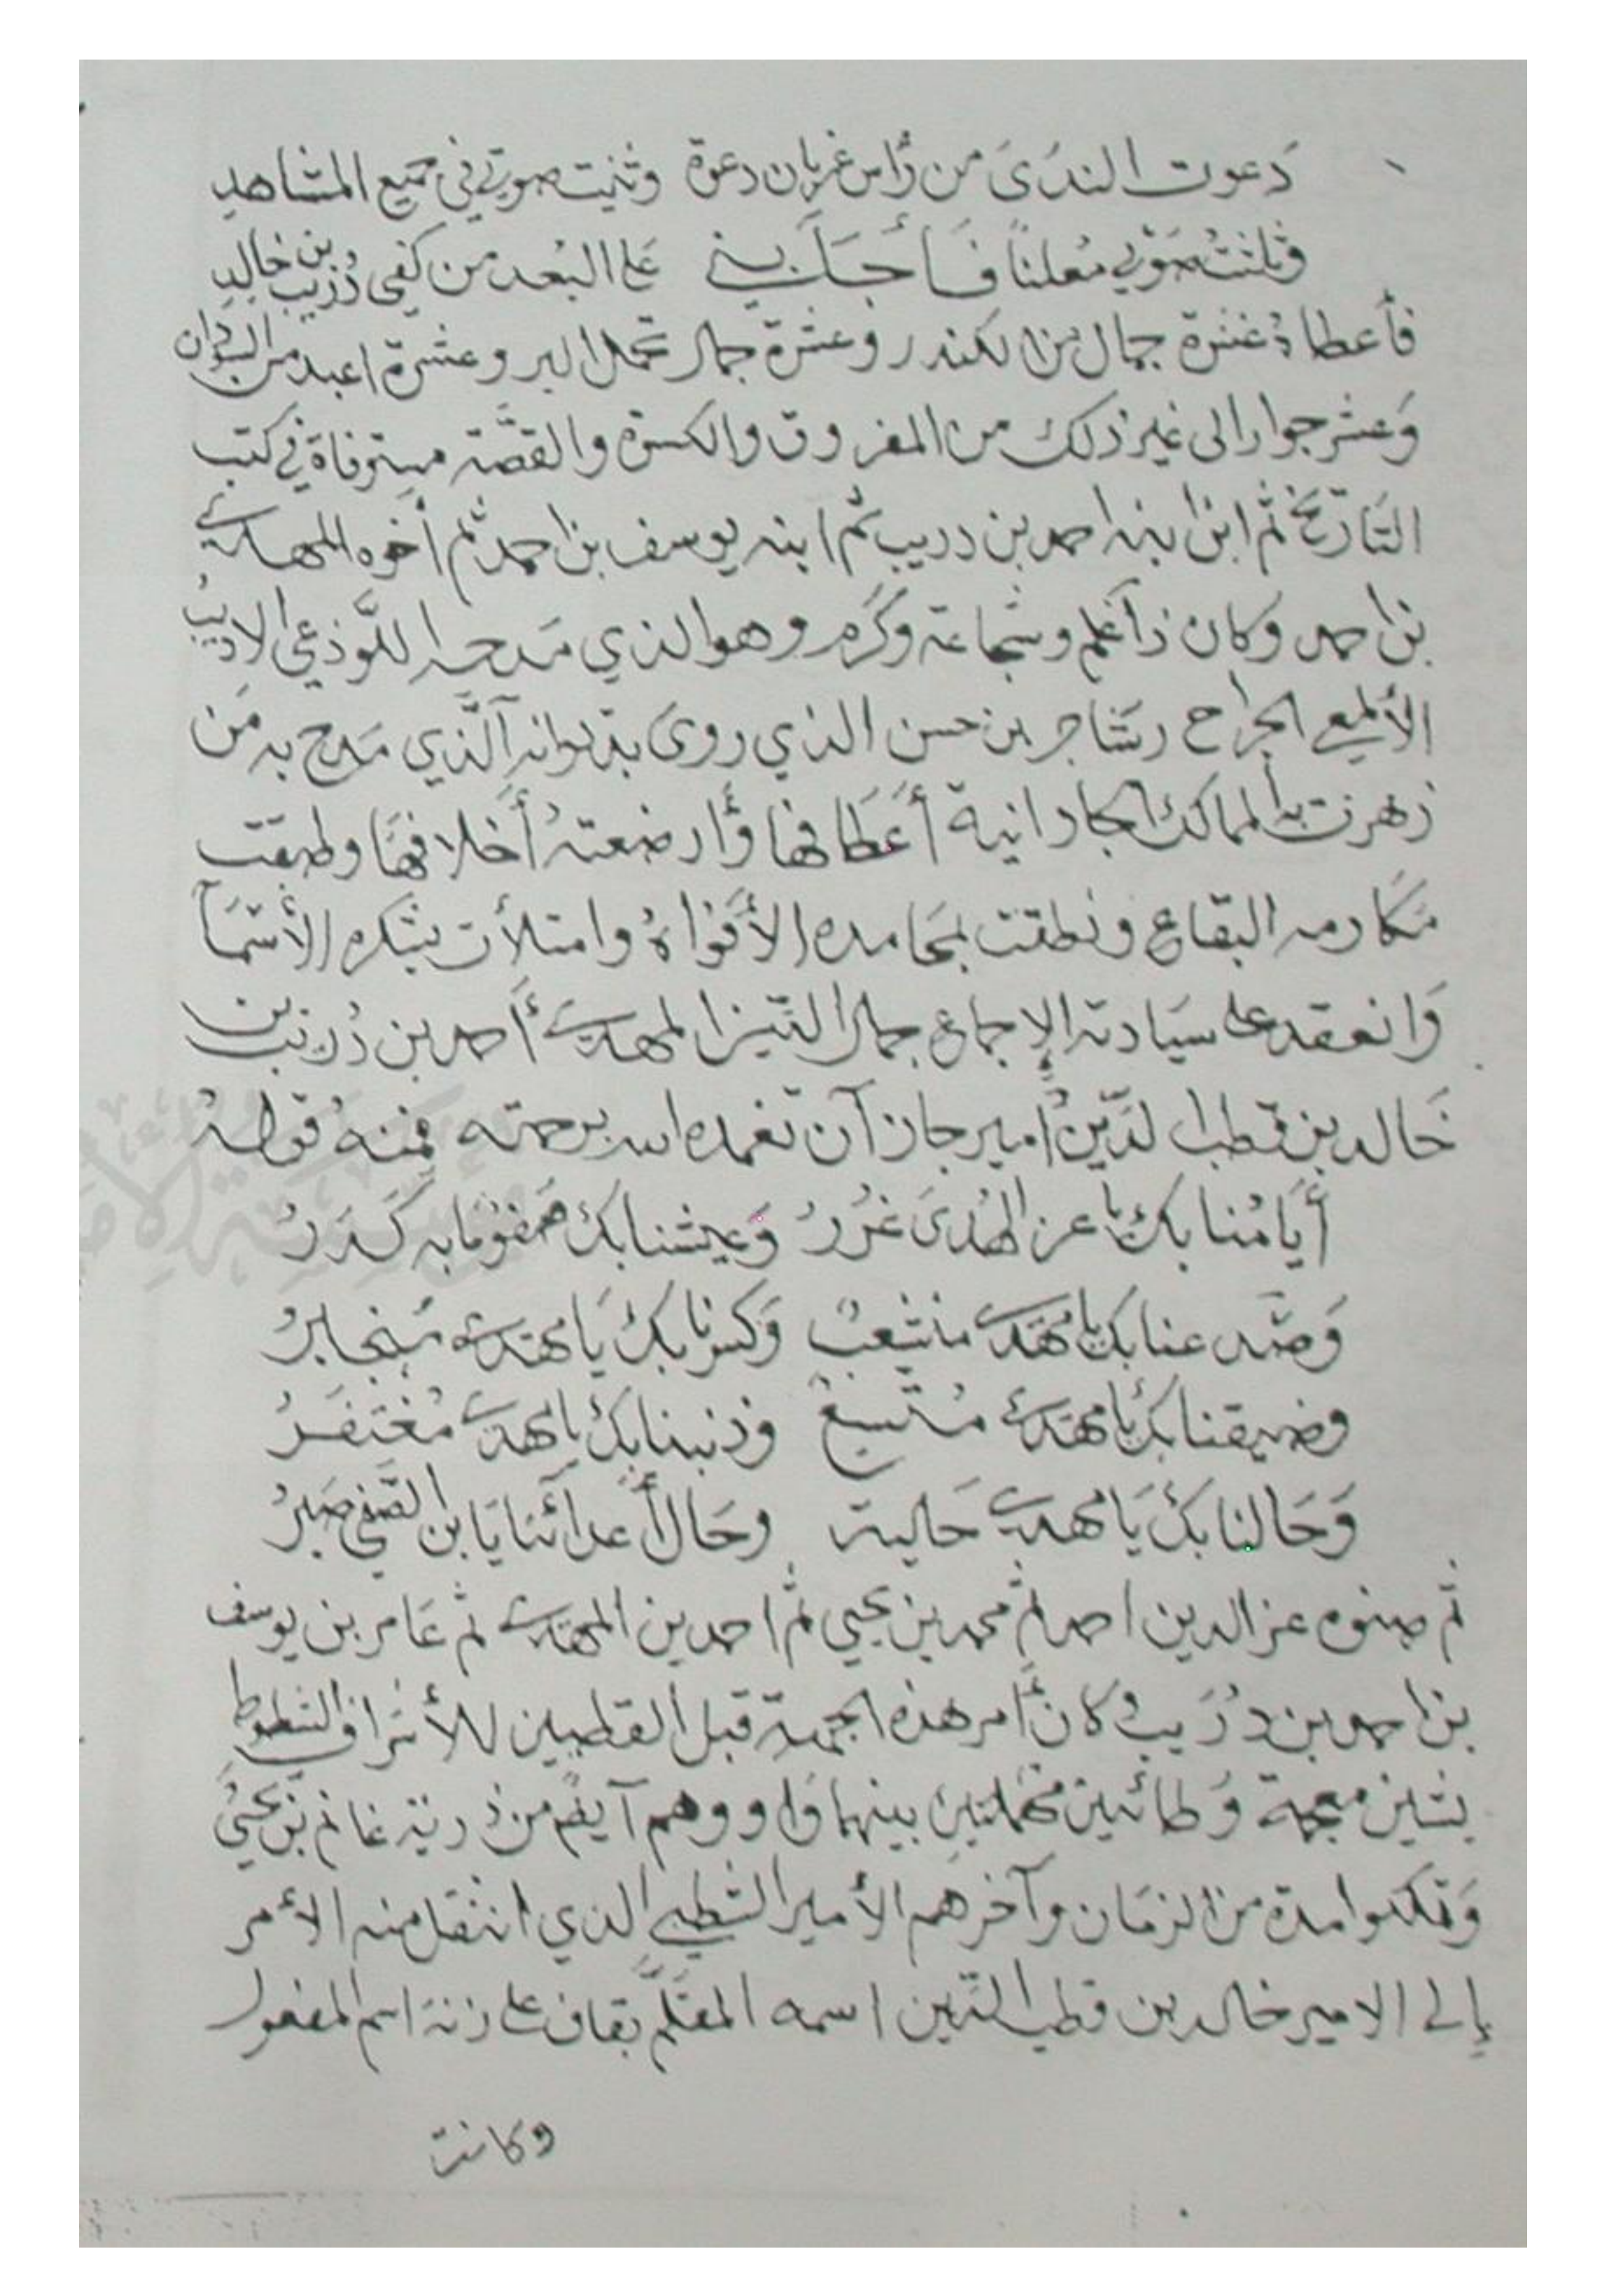 دَعوت الندَىَ من رَأس غربان دعوة وثنيت صوتي في جميع المشاهدِ
وثلثتُ صَوْتي مُعلناً فَأَجَابني عَلى البُعد من كفي دُرَيب بن خالدِ
فأعطاهُ عَشرة جمال من الكندر وعشرة جمال تحمل البر وعشرة اعبد من السودان
وَعشر جوار الى غير ذلك من المفروق والكسوة والقصَّة مستوفاة في كتب
التَارَيخ ثم ابن ابنه احمد بن دريب ثم ابنه يوسف بن احمد ثم أخوه المهدي
بن احمد وكان ذا عَلم وشجاعة وكَرَم وهو الذي مَدحه اللَّوذعي الاديبُ
الألمعي الجراح بن شاجر بن حسن الذي روىَ بديوانه الَّذي مَدح به مَن
زهرت به الممالك الجازانية أَعَطافها وأرضعتهُ أَخلافهَا وطبقت
مَكارمه البقاع ونطقت بمَحامده الأَفوَاهُ وامتلأت بشكره الأَسْمَاع
وَانعقد على سيَادته الإجماع جمال الدّين المهدي أَحمد بن دُرَيب بن
خَالد بن قطب الدّين أمير جازآن تغمده الله برحمته فمنهُ قولهُ
أَيامُنا بك يا عز الهُدىَ غُرَرُ وَعيشنا بك صَفوُ مَا به كَدَرُ
وَصَدعنا بك يا مهدي منشعبُ وَكسرنا بك يَا مهدي مُنجابرُ
وضيقنا بك يا مهدي مُتّسعُ وذنبنا بك يا مهدي مُغتَفَرُ
وَحَالنا بك يَا مهدي حَالية وحَال أَعدائنا يَا بن الصَّفي صَبرُ
ثم صنوه عز الدين احمد ثم محمد بن يحيى ثم احمد بن المهدي ثم عَامر بن يوسف
بن احمد بن دُرَيب وكان أَمر هذه الجهة قبل القطبيين للأشراف الشطوط
بشين معجمة وَطائين مهملتين بينهما وَاو وهم آيضًا من ذرية غانم بن يحيَىُ
وَتملكوا مدة من الزمَان وآخرهم الأمير الشطي الذي انتقل منه الأمر
إلى الامير خالد بن قطب الدّين اسمه المقلَّم بقاف على زنة اسم المفعول
وكانت